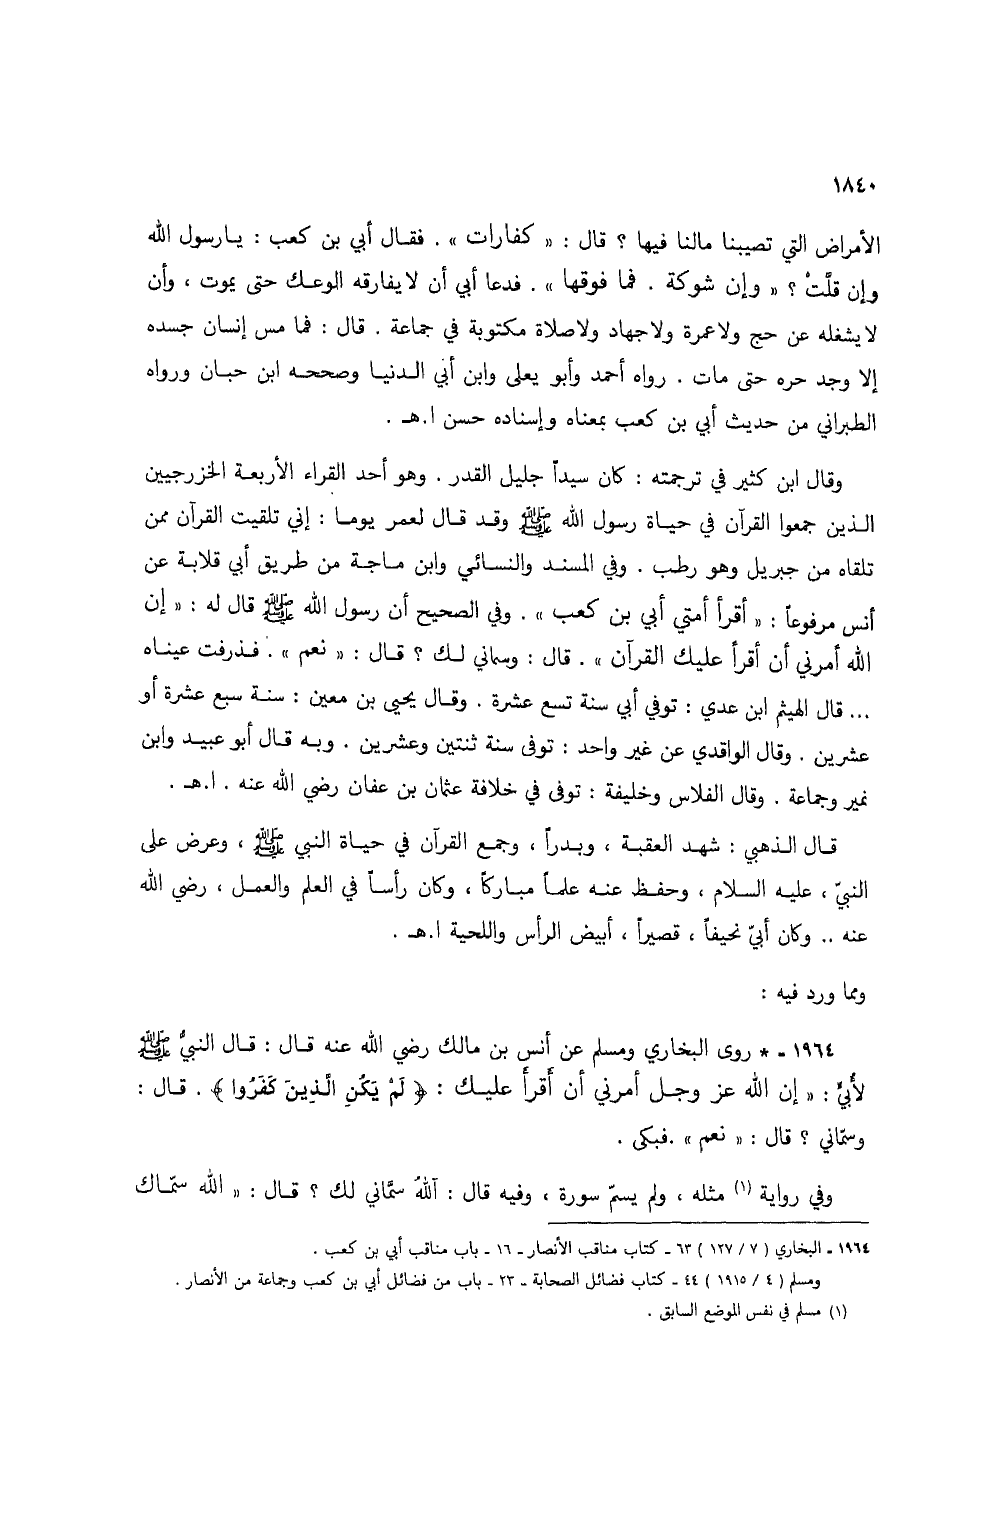 ١٨٤٠
الأمراض التي تصيبنا مالنا فيها ؟ قال : « كفارات » . فقال أبي بن كعب : يارسول الله
وإن قلَّتْ ؟ « وإن شوكة . فما فوقها » . فدعا أبي أن لايفارقه الوعك حتى يموت ، وأن
لايشغله عن حج ولاعمرة ولاجهاد ولاصلاة مكتوبة في جماعة . قال : فما مس إنسان جسده
إلا وجد حره حتى مات . رواه أحمد وأبو يعلى وابن أبي الدنيا وصححه ابن حبان ورواه
الطبراني من حديث أبي بن كعب بمعناه وإسناده حسن ا.هـ .
وقال ابن كثير في ترجمته : كان سيداً جليل القدر . وهو أحد القراء الأربعة الخزرجيين
الذين جمعوا القرآن في حياة رسول الله ﷺ وقد قال لعمر يوما : إني تلقيت القرآن ممن
تلقاه من جبريل وهو رطب . وفي المسند والنسائي وابن ماجة من طريق أبي قلابة عن
أنس مرفوعاً : « أقرأ أمتي أبي بن كعب » . وفي الصحيح أن رسول الله ﷺ قال له : « إن
الله أمرني أن أقرأ عليك القرآن » . قال : وسماني لك ؟ قال : « نعم » . فذرفت عيناه
... قال الهيثم ابن عدي : توفي أبي سنة تسع عشرة . وقال يحيى بن معين : سنة سبع عشرة أو
عشرين . وقال الواقدي عن غير واحد : توفى سنة ثنتين وعشرين . وبه قال أبو عبيد وابن
نمير وجماعة . وقال الفلاس وخليفة : توفى في خلافة عثمان بن عفان رضي الله عنه . ا.هـ .
قال الذهبي : شهد العقبة ، وبدراً ، وجمع القرآن في حياة النبي ﷺ ، وعرض على
النبيّ ، عليه السلام ، وحفظ عنه علماً مباركاً ، وكان رأساً في العلم والعمل ، رضي الله
عنه .. وكان أبيّ نحيفاً ، قصيراً ، أبيض الرأس واللحية ا.هـ .
ومما ورد فيه :
١٩٦٤ - * روى البخاري ومسلم عن أنس بن مالك رضي الله عنه قال : قال النبيُّ ﷺ
لأُبيٍّ : « إن الله عز وجل أمرني أن أقرأَ عليك : ﴿ لَمْ يَكُنِ الَّذِينَ كَفَرُوا ﴾ . قال :
وسمّاني ؟ قال : « نعم » .فبكى .
وفي رواية (١) مثله ، ولم يسمّ سورة ، وفيه قال : آللهُ سمَّاني لك ؟ قال : « الله سمّاك
١٩٦٤ - البخاري ( ٧ / ١٢٧ ) ٦٣ - كتاب مناقب الأنصار - ١٦ - باب مناقب أبي بن كعب .
ومسلم ( ٤ / ١٩١٥ ) ٤٤ - كتاب فضائل الصحابة - ٢٣ - باب من فضائل أبي بن كعب وجماعة من الأنصار .
(١) مسلم في نفس الموضع السابق .